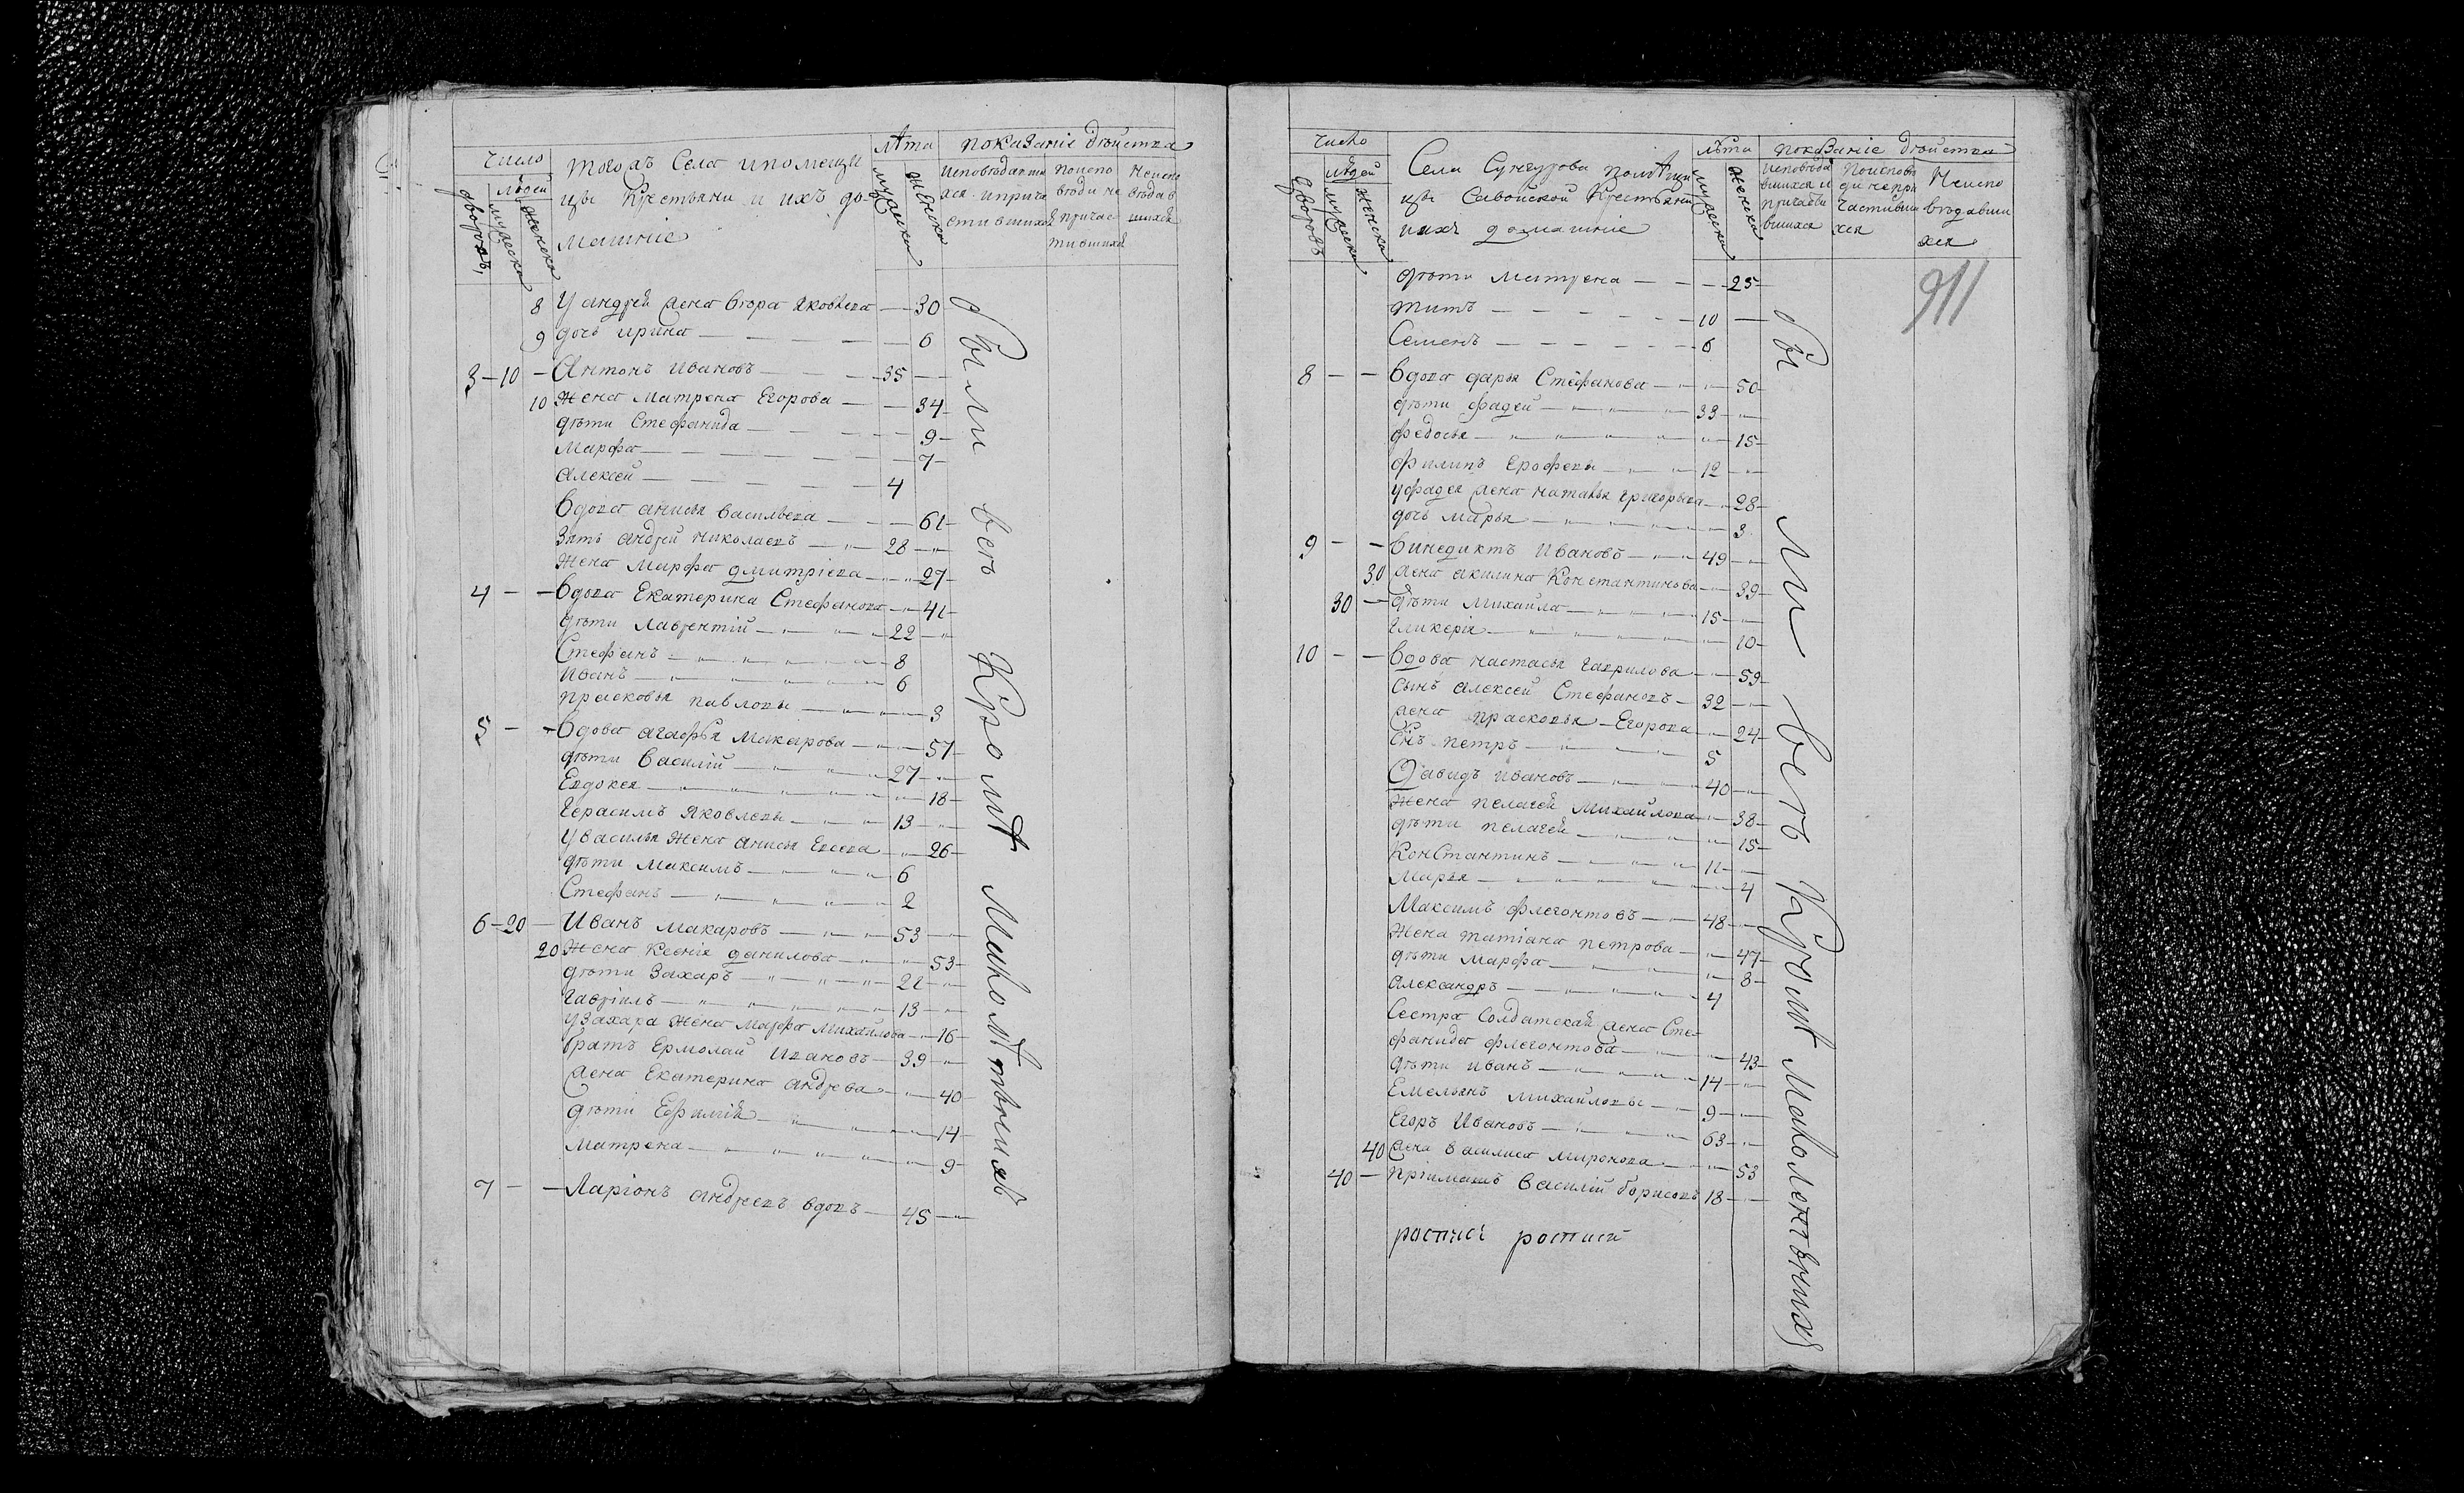 число
людей
дворовъ
мужеска
женска
тогожъ Села и помещи
цы Крестьяни и ихъ до-
машние
лѣта
мужеска
женска
показание двойства
исповѣдав
причас
стившихся
поиспо
вѣди не
причас
тившихся
неиспо
вѣдав
шихся
8 У андрей жена втора яковлева — 30
9 дочь ирина — 6
3 — 10 — Антонъ Ивановъ — 35
10 Жена Матрена Егорова — 34
дѣти Стефанида — 9
Марфа — 7
Алексей — 4
Вдова анисья васильева — 61
Зять андрей николаевъ — 28
Жена Марфа дмитриева — 27
4 — — Вдова Екатерина Стефанова — 41
дѣти Лаврентий — 22
Стефанъ — 8
Иванъ — 6
прасковья павловы — 3
5 — — Вдова агафья Макарова — 57
дѣти Василий — 27
Евдокея — 18
Герасимъ Яковлевы — 13
У василья жена анисья — 26
дѣти Максимъ — 6
Стефанъ — 2
6 — 20 — Иванъ Макаровъ — 53
20 Жена Ксения данилова — 53
дѣти Захаръ — 21
Гаврiилъ — 13
У Захара жена Марфа Михайлова — 16
братъ Ермолай Ивановъ — 39
жена Екатерина андреева — 40
дѣти Ефимия — 14
Матрена — 9
7 — — Ларiонъ андреевъ вдовъ — 45
были всѣ кромѣ малолѣтныхъ
число
людей
дворовъ
мужеска
женска
Села Сунгурова помѣщи
цы Савойской Крестьяни
и ихъ домашние
лѣта
мужеска
женска
показание двойства
исповѣда
вшихся и
причасти
вшихся
поисповѣ
ди не при
частивши
хся
Неиспо
вѣдавши
хся
911
дѣти Матрена — 25
титъ — 10
Семенъ — 6
8 — — Вдова дарья Стефанова — 50
дѣти фадей — 33
федосья — 15
филипъ Ерофеевы — 12
у фадея жена наталья григорьева — 28
дочь Марья — 3
9 — — Винедиктъ Ивановъ — 49
30 жена акилина Константинова — 39
30 — дѣти Михайла — 15
гликерiя — 10
10 — — Вдова настасья гаврилова — 59
сынъ алексей Стефановъ — 32
жена прасковья Егорова — 24
Снъ петръ — 5
Давидъ ивановъ — 40
Жена пелагея Михайлова — 38
дѣти пелагея — 15
Константинъ — 11
Марья — 4
Максимъ флегонтовъ — 48
Жена татiана петрова — 47
дѣти Марфа — 8
александръ — 4
Сестра Солдатская жена Сте
фанида флегонтова — 43
дѣти иванъ — 14
Емельянъ Михайловы — 9
Егоръ Ивановъ — 63
40 жена Василиса миронова — 53
40 — прiимышъ Василий борисовъ 18
были всѣ кромѣ малолѣтныхъ